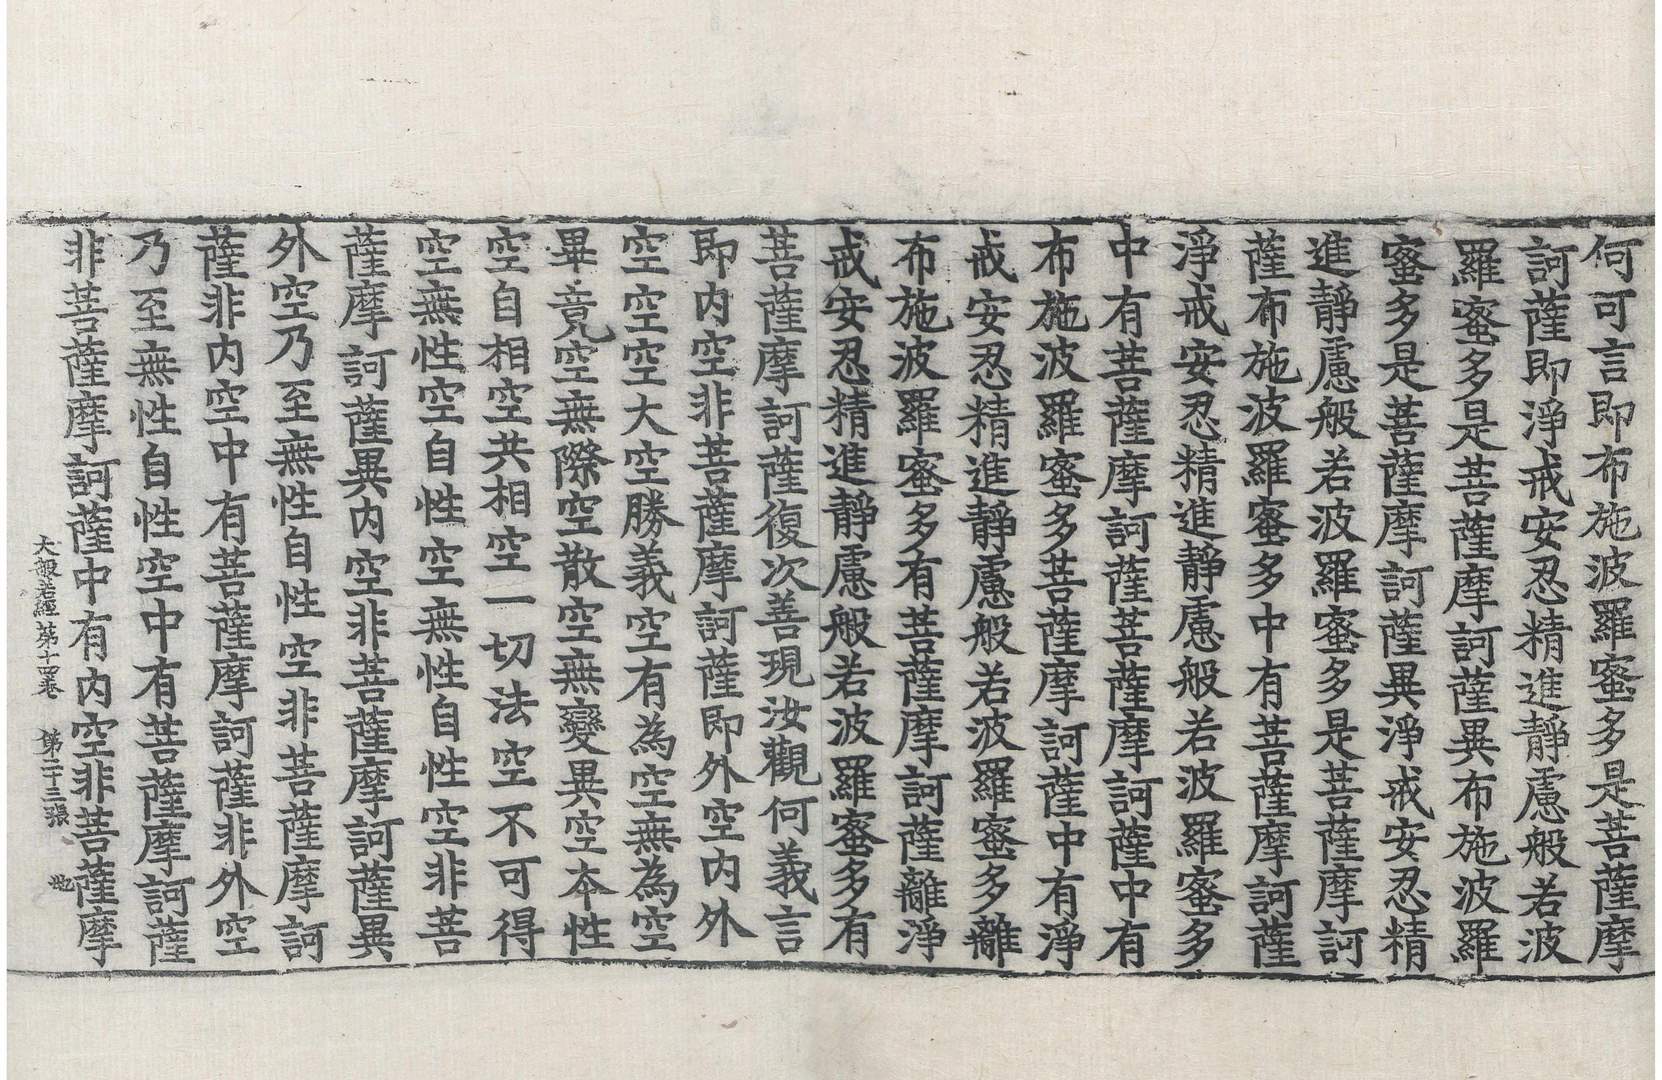 何可言即布施波羅蜜多是菩薩摩
訶薩即淨戒安忍精進靜慮般若波
羅蜜多是菩薩摩訶薩異布施波羅
蜜多是菩薩摩訶薩異淨戒安忍精
進靜慮般若波羅蜜多是菩薩摩訶
薩布施波羅蜜多中有菩薩摩訶薩
淨戒安忍精進靜慮般若波羅蜜多
中有菩薩摩訶薩菩薩摩訶薩中有
布施波羅蜜多菩薩摩訶薩中有淨
戒安忍精進靜慮般若波羅蜜多離
布施波羅蜜多有菩薩摩訶薩離淨
戒安忍精進靜慮般若波羅蜜多有
菩薩摩訶薩復次善現汝觀何義言
即内空非菩薩摩訶薩即外空内外
空空空大空勝義空有為空無為空
畢竟空無際空散空無變異空本性
空自相空共相空一切法空不可得
空無性空自性空無性自性空非菩
薩摩訶薩異内空非菩薩摩訶薩異
外空乃至無性自性空非菩薩摩訶
薩非内空中有菩薩摩訶薩非外空
乃至無性自性空中有菩薩摩訶薩
非菩薩摩訶薩中有内空非菩薩摩
大般若經第十四卷 第二十三張 地